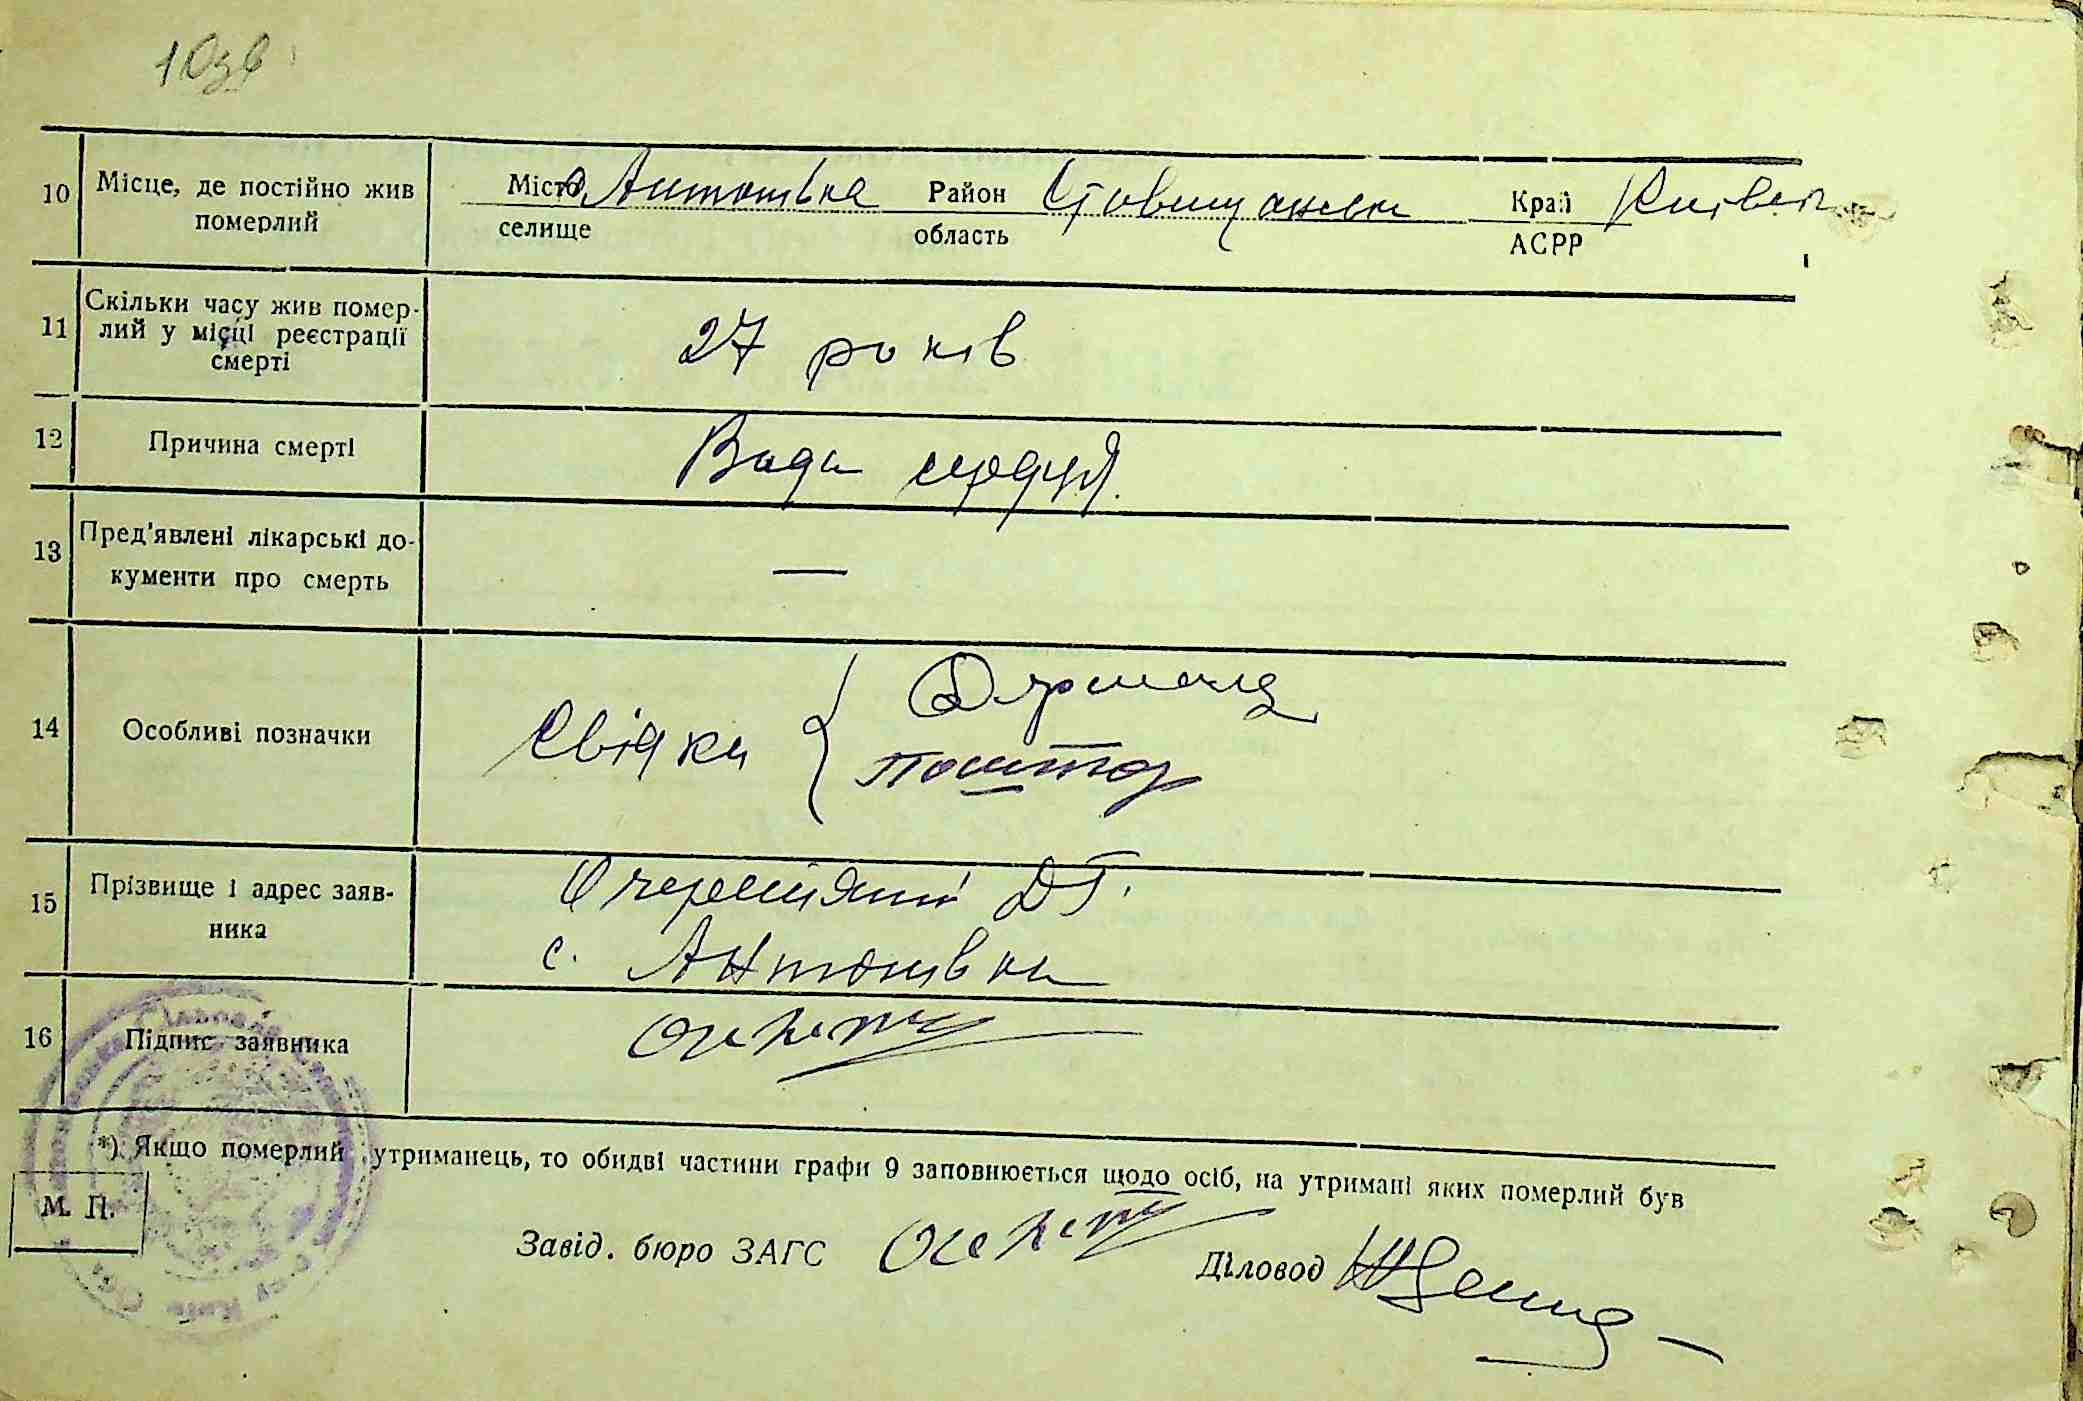 10зв
10 Місце, де постійно жив Місто с. Антонівка Район Ставищанськ Край Київськ
померлий селище область АСРР
Скільки часу жив помер-
11 лий у місці реєстрації 27 років
смерті
12 Причина смерті Вада серця.
13 Пред'явлені лікарські до- —
кументи про смерть
14 Особливі позначки Свідки {
15 Прізвище і адрес заяв- Очеретяний ДТ.
ника с. Антонівка
16 Підпис заявника
*) Якщо померлий утриманець, то обидві частини графи 9 заповнюється щодо осіб, на утримані яких померлий був
М. П.
Завід. бюро ЗАГС Діловод